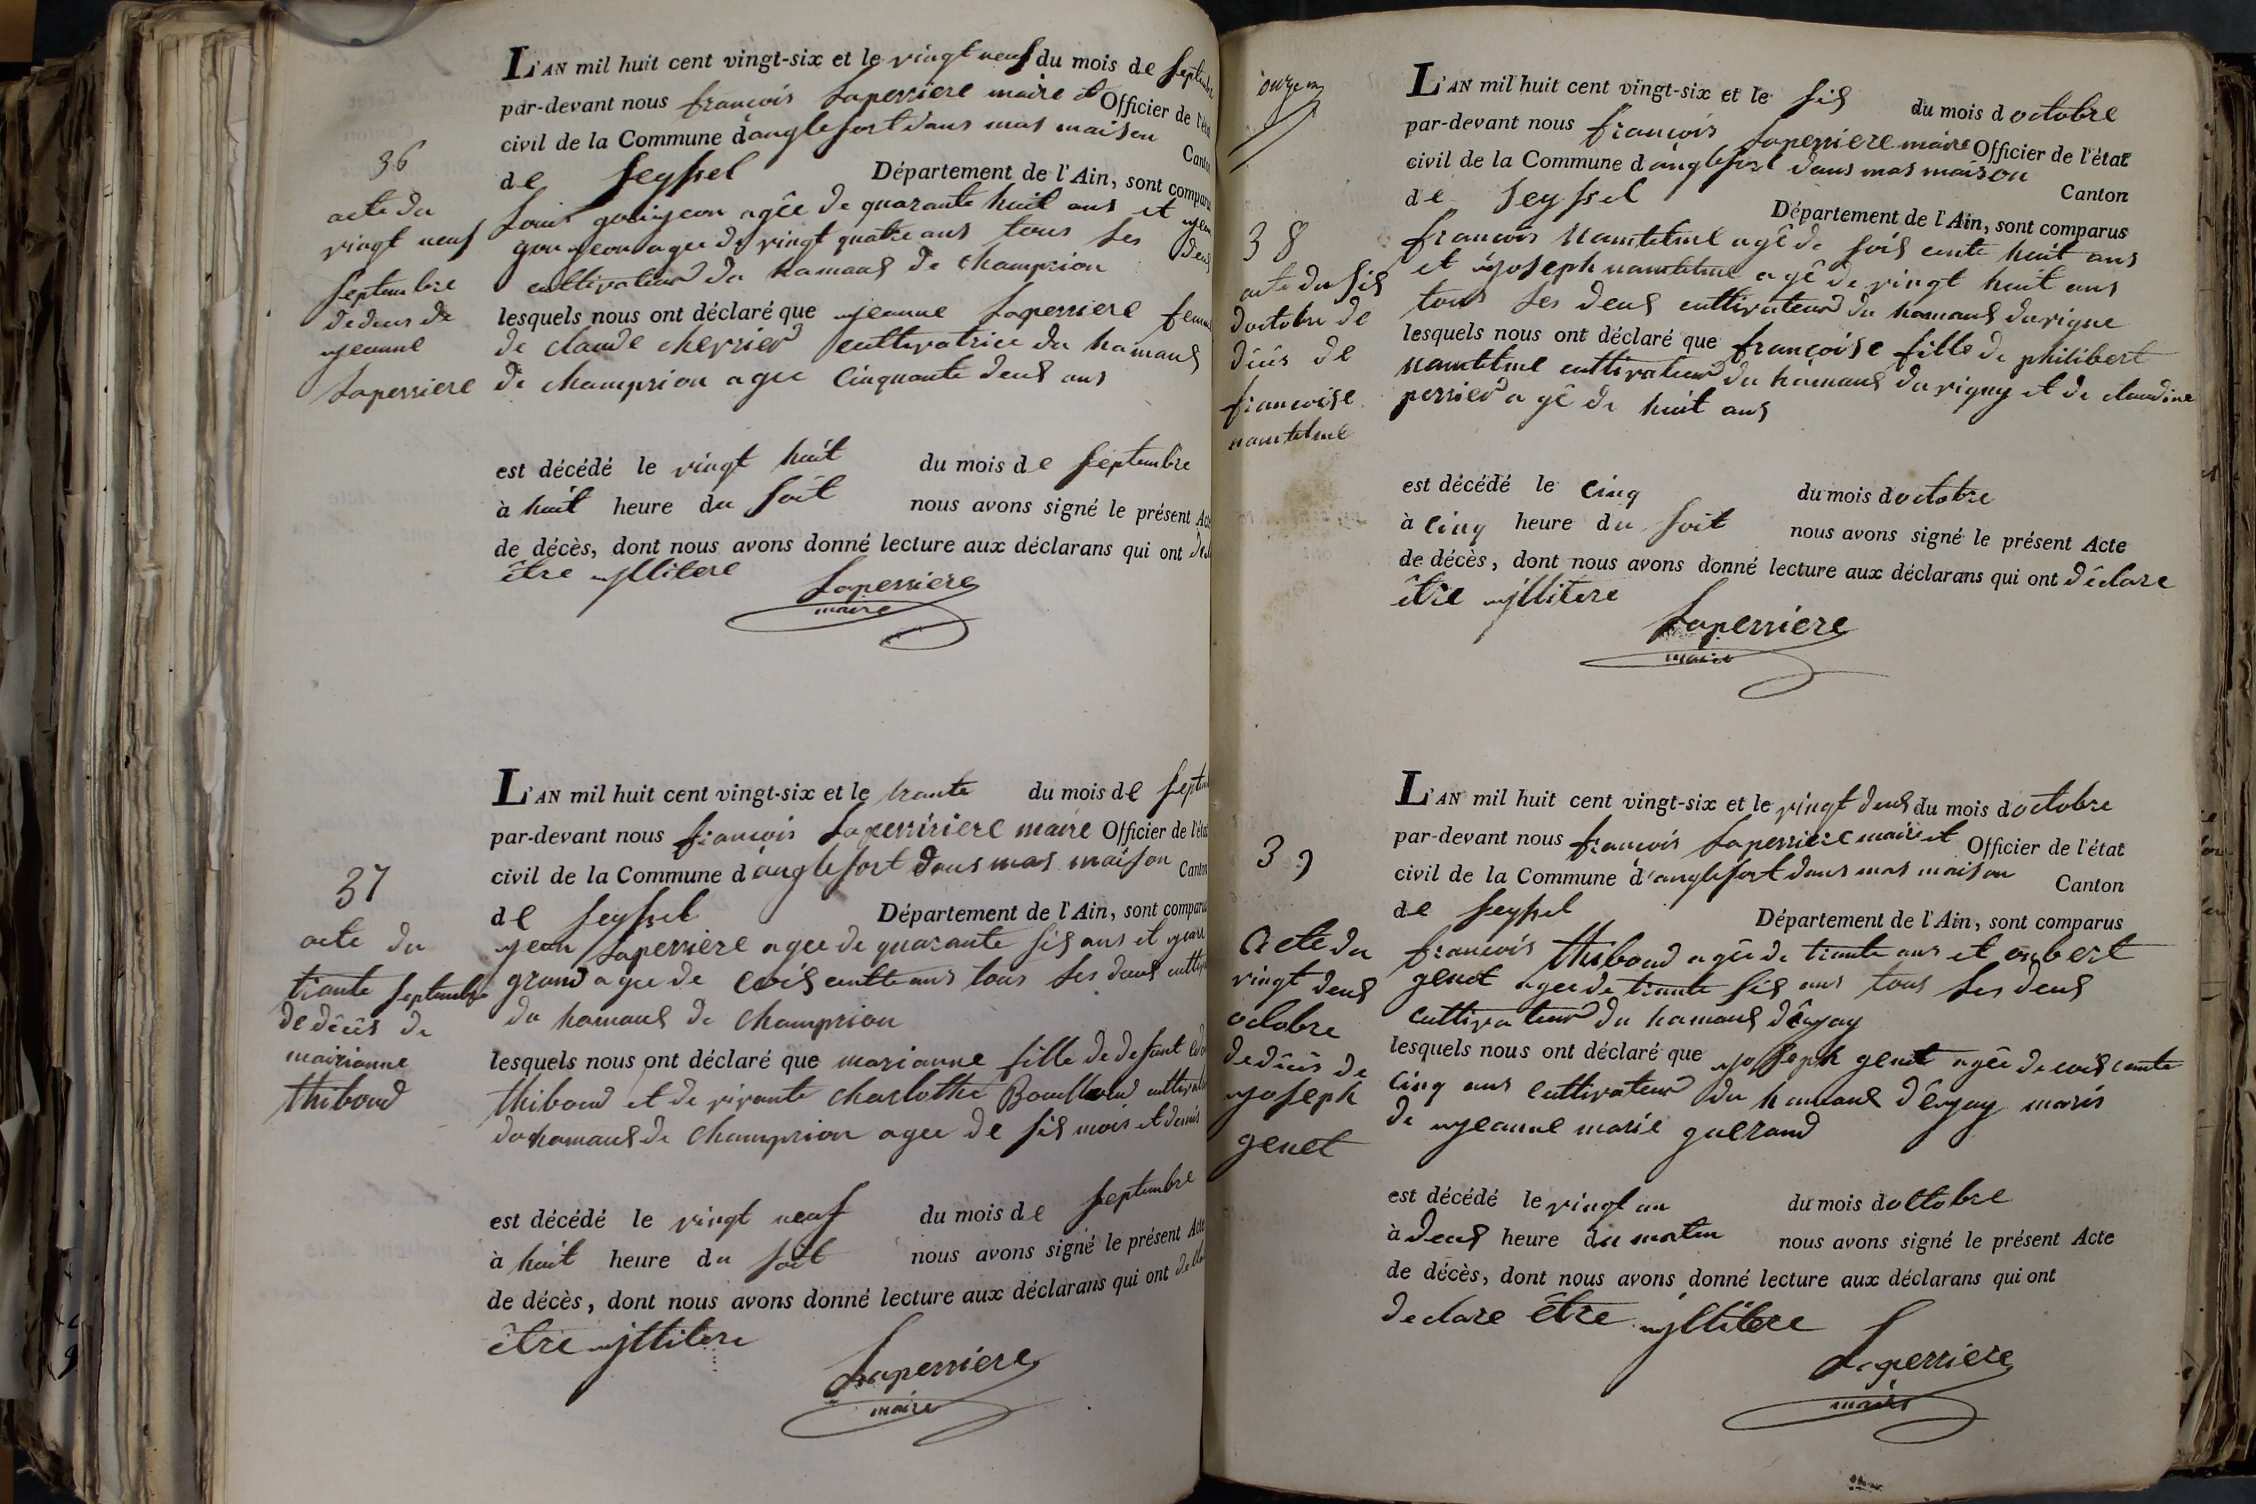 L'AN mil huit cent vingt-six et le vingt neuf du mois de septembre
par-devant nous francois Laperriere maire et Officier de l'état
civil de la Commune d'anglefort dans mas maison Canton
de seyssel Département de l'Ain, sont comparus
Louis goujeon agée de quarante huit ans et
goujeon agee de vingt quatre ans tous ses deus
cultivateur du hamaus de champrion
lesquels nous ont déclaré que jeanne Laperriere femme
de claude cherrier cultivatrice du hamaus
de champrion agee cinquante deus ans
est décédé le vingt huit du mois de septembre
à huit heure du soit nous avons signé le présent Acte
de décès, dont nous avons donné lecture aux déclarans qui ont
être jllitere
Laperriere
maire
36
acte du
vingt neuf
septembre
de deces de
jeanne
Laperriere
L'AN mil huit cent vingt-six et le trante du mois de septembre
par-devant nous francois Laperririere maire Officier de l'état
civil de la Commune d'anglefort dans mas maison Canton
de seyssel Département de l'Ain, sont comparus
jean Laperriere agee de quarante sis ans et
grand agee de coissentte ans tous ses deus
du hamaus de champrion
lesquels nous ont déclaré que marianne fille de defunt
thiboud et de vivante charlotthe
du hamaus de champrion agee de sis mois et demis
est décédé le vingt neuf du mois de septembre
à huit heure du soit nous avons signé le présent Acte
de décès, dont nous avons donné lecture aux déclarans qui ont
être jllitere
Laperriere
maire
37
acte du
trante septembre
de décès de
mairianne
thiboud
L'AN mil huit cent vingt-six et le sis du mois d octobre
par-devant nous francois Laperriere maire Officier de l'état
civil de la Commune d'anglefort dans mas maison
de seyssel Canton
Département de l'Ain, sont comparus
francois Namtelme agê de sois cente huit ans
et joseph namtelme agê de vingt huit ans
tous ses deus cultivateur du hamaus darigne
lesquels nous ont déclaré que françoise fille de philibert
namtelme cultivateur du hamaus darigny et de claudine
perrier agê de huit ans
est décédé le cinq du mois doctobre
à cinq heure du soit nous avons signé le présent Acte
de décès, dont nous avons donné lecture aux déclarans qui ont déclare
être jllitere
Laperriere
maire
38
acte du sis
doctobre de
décès de
francoise
namtelme
L'AN mil huit cent vingt-six et le vingt deus du mois doctobre
par-devant nous francois Laperriere maire et Officier de l'état
civil de la Commune d'anglefort dans mas maison Canton
de seyssel
Département de l'Ain, sont comparus
francois thiboud agée de trante ans et onbert
genet agee de trante sis ans tous ses deus
cultivateur du hamaus
lesquels nous ont déclaré que joseph genet agée de cois cente
cinq ans cultivateur du hamaus maris
de jeanne marie guerand
est décédé le vingt un du mois doctobre
à deus heure du matin nous avons signé le présent Acte
de décès, dont nous avons donné lecture aux déclarans qui ont
declare être jllitere
Laperriere
maire
39
acte du
vingt deus
octobre
de décès de
joseph
genet